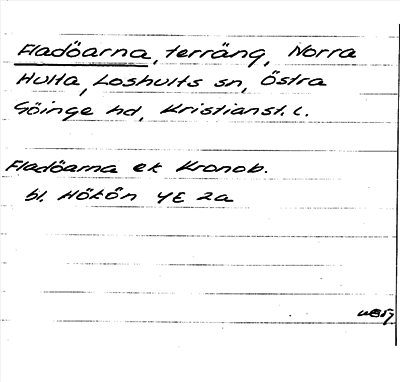 Fladöarna, terräng, Norra
Hulta, Loshults sn, Östra
Göinge hd, Kristianst. l.
Fladöarna ek Kronob.
bl. Hökön 4E 2a